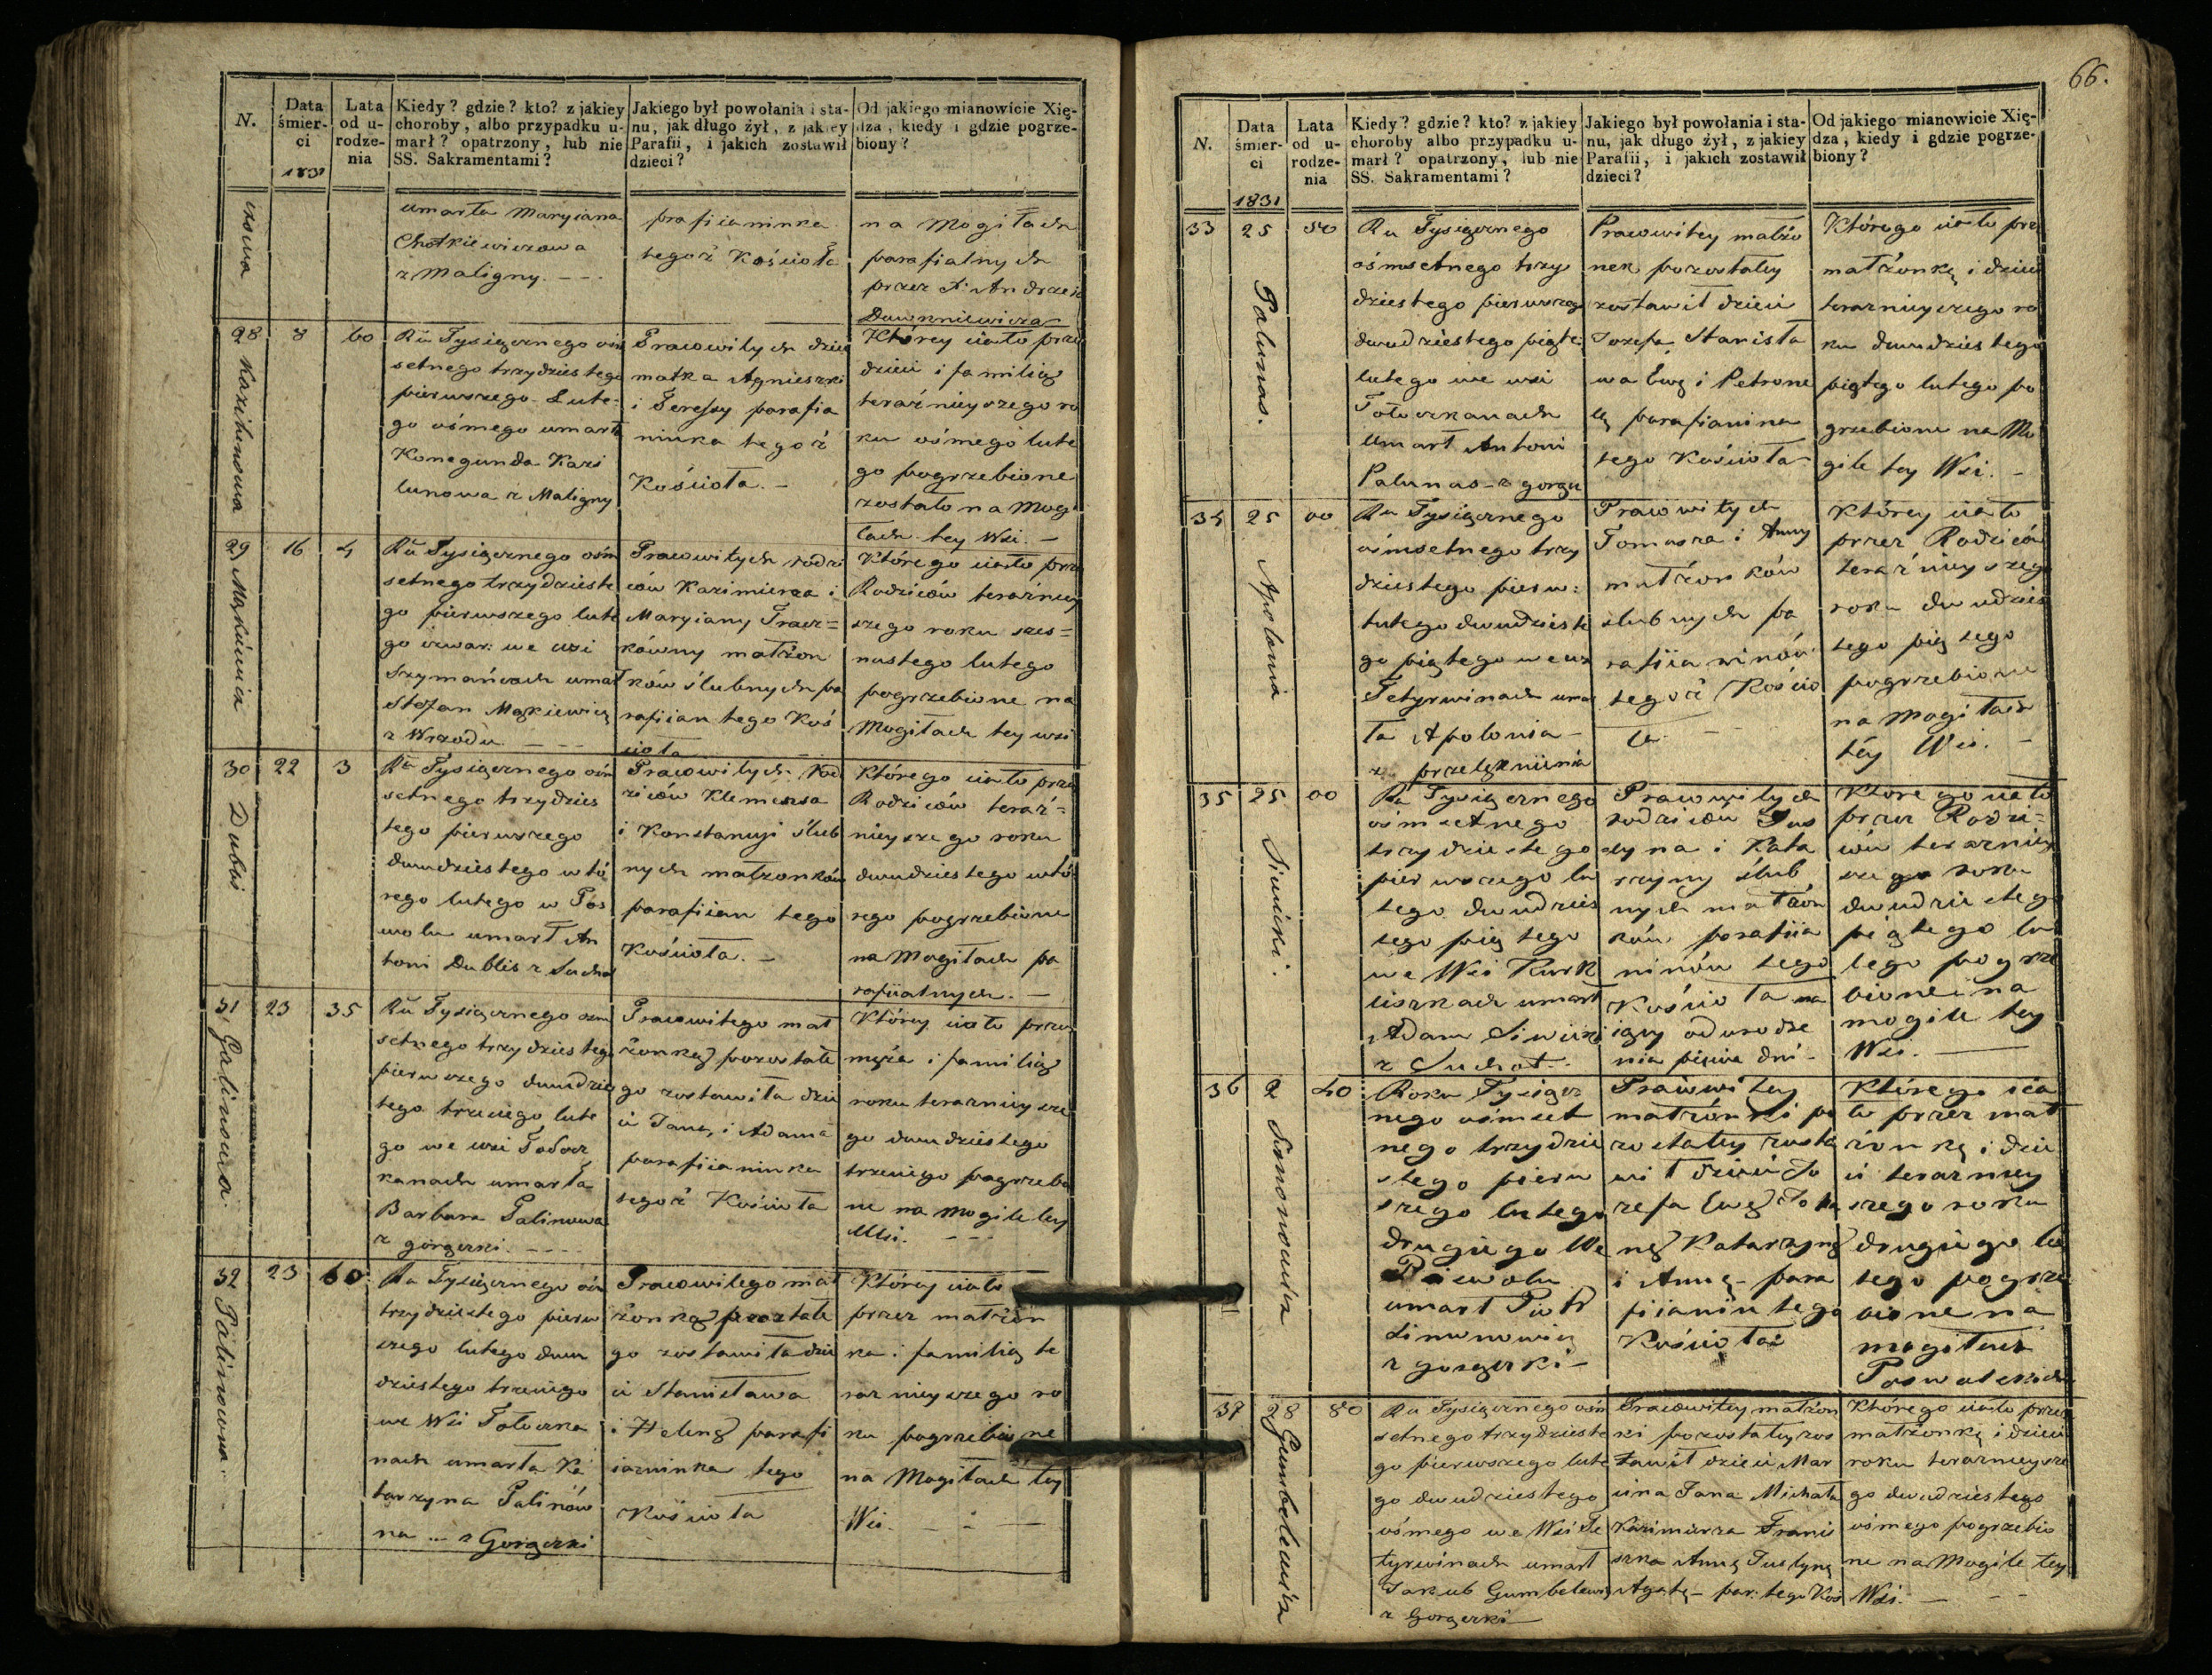 N.
Data śmier-ci
1831
Lata od u-rodze-nia
Kiedy? gdzie? kto? z jakiey
choroby, albo przypadku u-
marł? opatrzony, lub nie
SS. Sakramentami?
Jakiego był powołania i sta-
nu, jak długo żył, z jakiey
Parafii, i jakich zostawił
dzieci?
Od jakiego mianowicie Xię-
dza, kiedy i gdzie pogrze-
biony?
umarła Maryiana
Chotkiewiczowa
z Maligny.
parafiianinka
tegoż Kościoła
na Mogiłach
parafialnych
przez X. Andrzeia
28
Kazilunowa
8
60
Ru Tysiącznego ośm
setnego trzydziestego
pierwszego Lute-
go ósmego umarła
Konegunda Kazi
lunowa z Maligny
Pracowitych dzieci
matka Agnieszki
i Teressy parafia
ninka tegoż
Kościoła. -
Którey ciało przez
dzieci i familią
teraźnieyszego ro
ku ósmego lute
go pogrzebione
zostało na Mogi
łach tey Wsi. -
29
Mackiewicz
16
4
Ru Tysiącznego ośm
setnego trzydzieste
go pierwszego lute
go we wsi
Szymańcach umarł
Stefan Mackiewicz
z Wrzodu
Pracowitych rodzi
ców Kazimierza i
Maryiany
małżon
ków ślubnych pa
rafiian tego Koś
cioła
Którego ciało przez
Rodziców teraźniey
szego roku szes=
nastego lutego
pogrzebione na
Mogiłach tey wsi
30
Dublis
22
3
Ru Tysiącznego ośm
setnego trzydzies
tego pierwszego
dwudziestego wtó
rego lutego w Pos
wolu umarł An
toni Dublis z Suchot
Pracowitych Rod
ziców Klemensa
i Konstancyi ślub
nych małżonków
parafiian tego
Kościoła. -
Którego ciało przez
Rodziców teraź=
nieyszego roku
dwudziestego wtó
rego pogrzebione
na Mogiłach pa
rafiialnych. -
31
Galinowa
23
35
Ru Tysiącznego ośm
setnego trzydziestego
pierwszego dwudzies
tego trzeciego lute
go we wsi Tołocz
kanach umarła
Barbara Galinowa
z gorączki.
Pracowitego mał
żonka pozostałe
go zostawiła dzie
ci Jana, i Adama
parafiianinka
tegoż Kościoła
Którey ciało przez
męża i familią
roku teraźnieysze
go dwudziestego
trzeciego pogrzebio
ne na mogile tey
Wsi.
32
Palinowna
23
60
Ru Tysiącznego ośm
trzydziestego pierw
szego lutego dwu
dziestego trzeciego
we Wsi Tołoczka
nach umarła Ka
tarzyna Palinów
na z Gorączki
Pracowitego mał
żonka pozostałe
go zostawiła dzie
ci Stanisława
i Helenę parafi
ianinka tego
Kościoła
Którey ciało
przez małżon
ka i familią te
raznieyszego ro
ku pogrzebione
na Mogiłach tey
Wsi.
66.
N.
Data śmier-ci
1831
Lata od u-rodze-nia
Kiedy? gdzie? kto? z jakiey
choroby albo przypadku u-
marł? opatrzony, lub nie
SS. Sakramentami?
Jakiego był powołania i sta-
nu, jak długo żył, z jakiey
Parafii, i jakich zostawił
dzieci?
Od jakiego mianowicie Xię-
dza, kiedy i gdzie pogrze-
biony?
33
Palunas.
25
50
Ru Tysiącznego
ośmsetnego trzy
dziestego pierwszego
dwudziestego piąte:
lutego we wsi
Tołoczkanach
Umarł Antoni
Palunas z gorącz
Pracowitey małżo
nek pozostałey
zostawił dzieci
Jozefa Stanisła
wa Ewę i Petrone
lę parafianina
tego Kościoła
Którego ciało prze
małżonkę i dzieci
teraznieyszego ro
ku dwudziestego
piątego lutego po
grzebione na Mo
gile tey Wsi. -
34
Apolonia
25
00
Ru Tysiącznego
ośmsetnego trzy
dziestego pierw:
lutego dwudzieste
go piątego we wsi
Tetyrwinach umar
ła Apolonia
z przelęknienia
Pracowitych
Tomasza i Anny
małżonków
ślubnych pa
rafiianinów
tegoż Kościo
ła
Którey ciało
przez Rodziców
teraźnieyszego
roku dwudzies
tego piątego
pogrzebione
na Mogiłach
tey Wsi. -
35
Siwicki.
25
00
Ru Tysiącznego
ośmsetnego
trzydziestego
pierwszego lu
tego dwudzies
tego piątego
we Wsi Kurk
liszkach umarł
Adam Siwicki
z Suchot.
Pracowitych
rodziców Jus
tyna i Kata
rzyny ślub
nych małżon
ków parafiia
ninów tego
Kościoła ma
iący od urodze
nia dni
Którego ciało
przez Rodzi=
ców teraźniey
szego roku
dwudziestego
piątego lu
tego pogrze
bione na
mogile tey
Wsi.
36
Simonowicz
2
40
Roku Tysiącz
nego ośmset
nego trzydzie
stego pierw
szego lutego
drugiego We
Poswolu
umarł Piotr
Simonowicz
z gorączki
Pracowitey
małżonki po
zostałey zosta
wił dzieci Jo
zefa Ewę Jo
nę Katarzynę
i Annę para
fiianin tego
Kościoła
Którego cia
ło przez mał
żonkę i dzie
ci terazniey
szego roku
drugiego lu
tego pogrze
bione na
mogiłach
Poswolskich
37
Gumbelewicz
28
80
Ru Tysiącznego ośm
setnego trzydzieste
go pierwszego lute
go dwudziestego
ósmego we Wsi Te
tyrwinach umarł
Jakub Gumbelewicz
z Gorączki
Pracowitey małżon
ki pozostałey zos
tawił dzieci Mar
cina Jana Michała
Kazimierza Franci
szka Annę Justynę
Agatę par: tego Koś
Którego ciało przez
małżonkę i dzieci
roku teraznieysze
go dwudziestego
ósmego pogrzebio
ne na Mogile tey
Wsi.